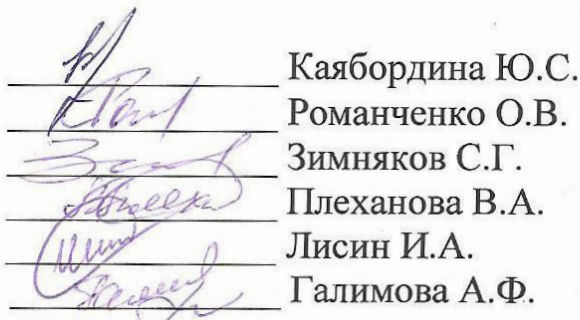 Каябордина Ю.С.
Романченко О.В.
Зимняков С.Г.
Плеханова В.А.
Лисин И.А.
Галимова А.Ф.